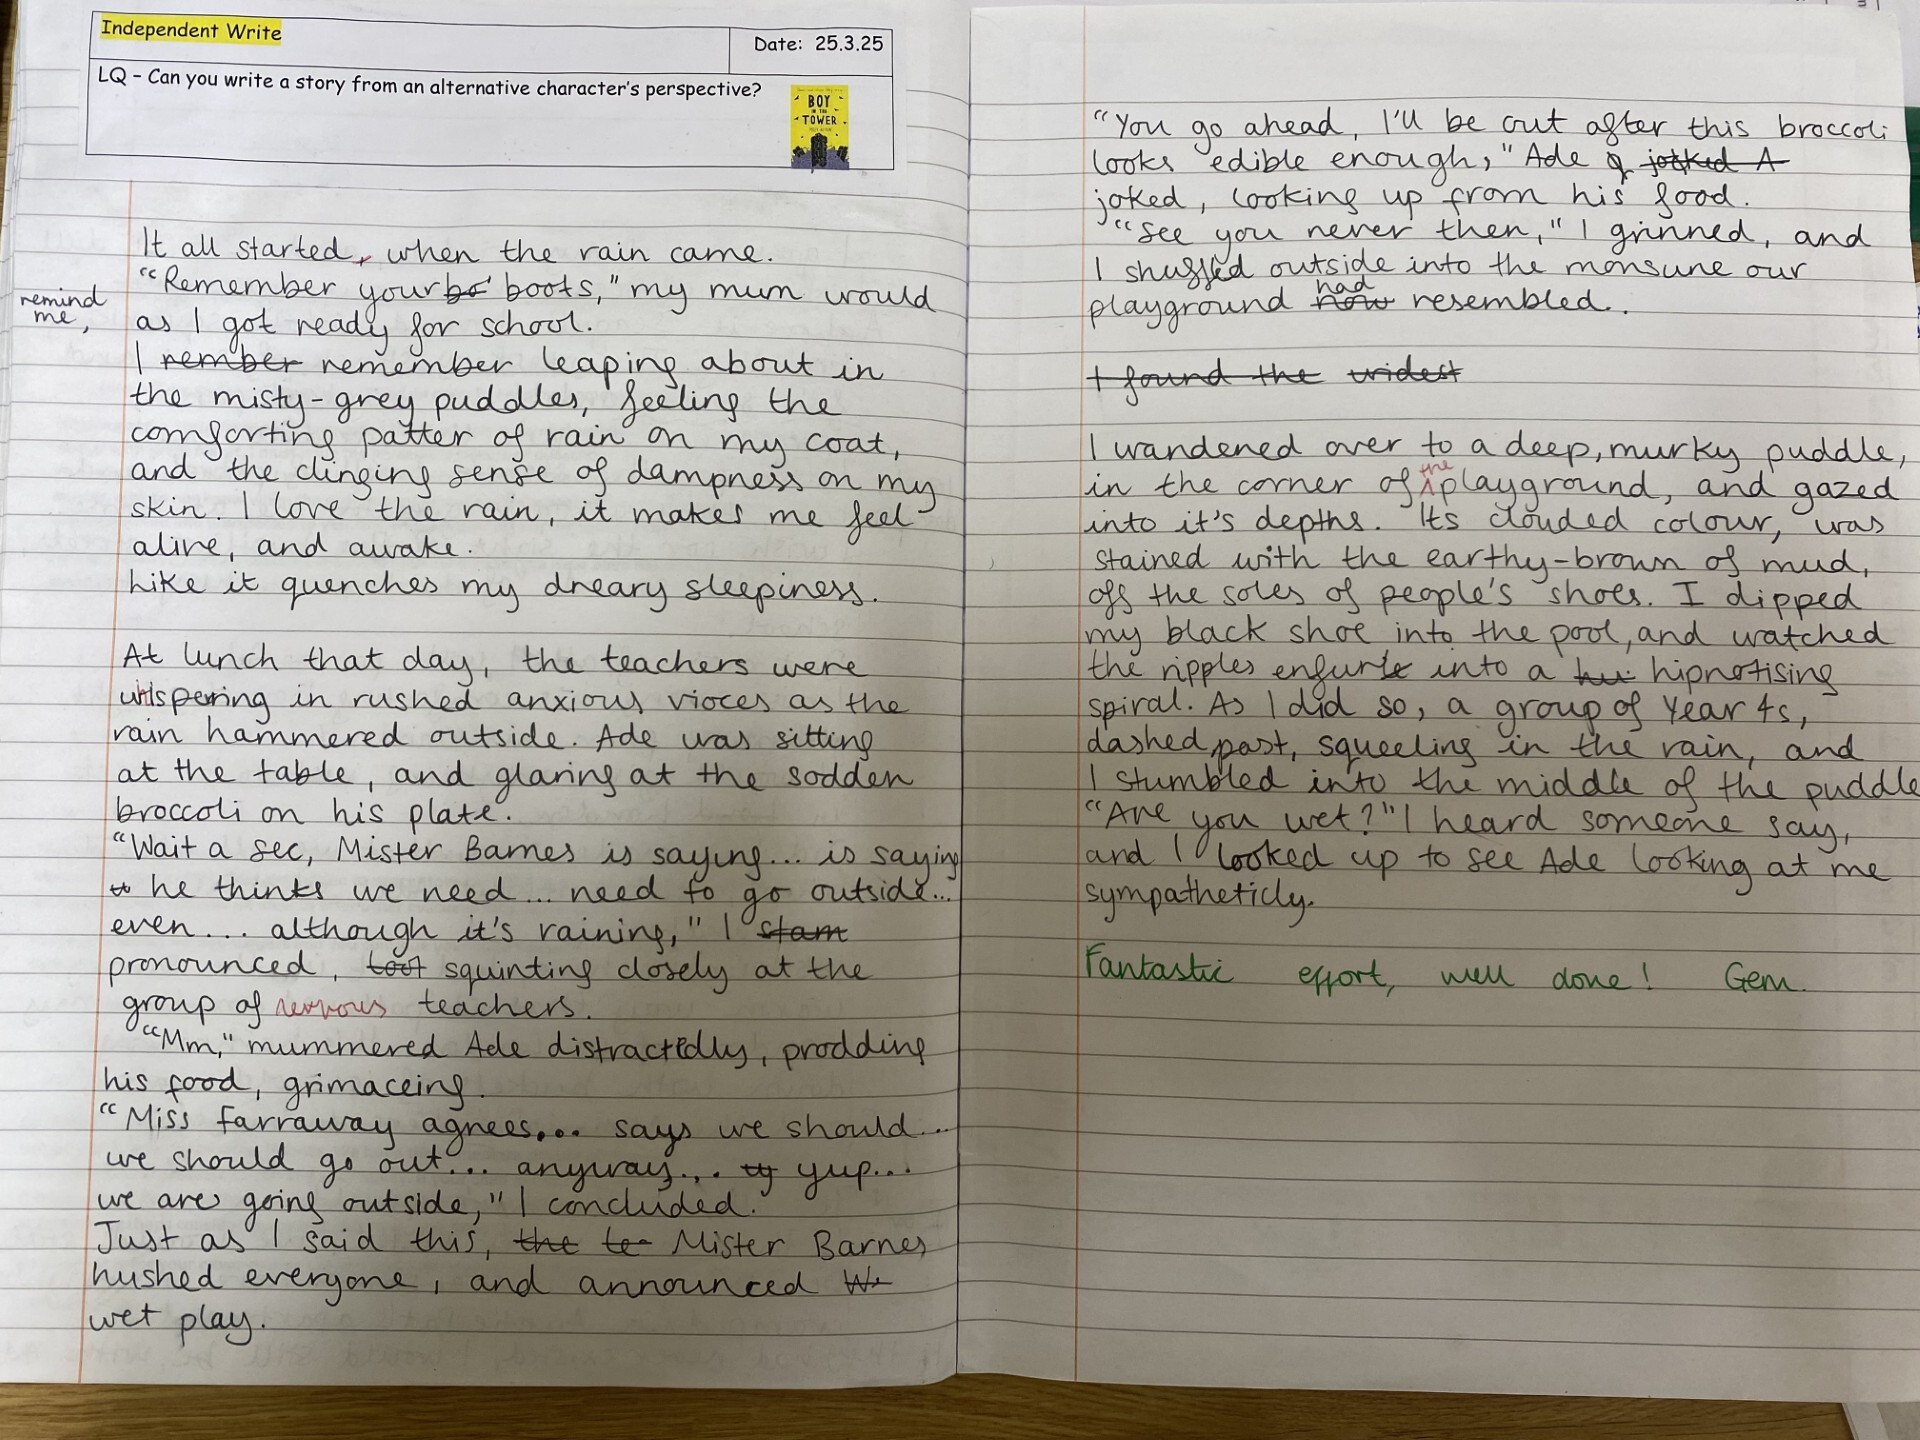 Independent Write
Date: 25.3.25
LQ – Can you write a story from an alternative character's perspective?
BOY
IN THE
TOWER
It all started, when the rain came.
"Remember your bo boots," my mum would
remind
me,
as I got ready for school.
I rember remember leaping about in
the misty-grey puddles, feeling the
comforting patter of rain on my coat,
and the clinging sense of dampness on my
skin. I love the rain, it makes me feel
alive, and awake.
Like it quenches my dreary sleepiness.
At lunch that day, the teachers were
whispering in rushed anxious vioces as the
rain hammered outside. Ade was sitting
at the table, and glaring at the sodden
broccoli on his plate.
"Wait a sec, Mister Barnes is saying... is saying
to he thinks we need... need to go outside...
even... although it's raining," I stam
pronounced, loot squinting closely at the
group of nervous teachers.
"Mm," mummered Ade distractedly, prodding
his food, grimaceing.
"Miss Farraway agrees... says we should...
we should go out... anyway... ty yup...
we are going outside," I concluded.
Just as I said this, the te Mister Barnes
hushed everyone, and announced We
wet play.
"You go ahead, I'll be out after this broccoli
looks edible enough," Ade jotked A
joked, looking up from his food.
"See you never then," I grinned, and
I shuffled outside into the monsune our
playground now had resembled.
I found the widest
I wandered over to a deep, murky puddle,
in the corner of the playground, and gazed
into it's depths. Its clouded colour, was
stained with the earthy-brown of mud,
off the soles of people's shoes. I dipped
my black shoe into the pool, and watched
the ripples enfurle into a hu hipnotising
spiral. As I did so, a group of Year 4s,
dashed past, squeeling in the rain, and
I stumbled into the middle of the puddle
"Are you wet?" I heard someone say,
and I looked up to see Ade looking at me
sympatheticly.
Fantastic effort, well done! Gem.